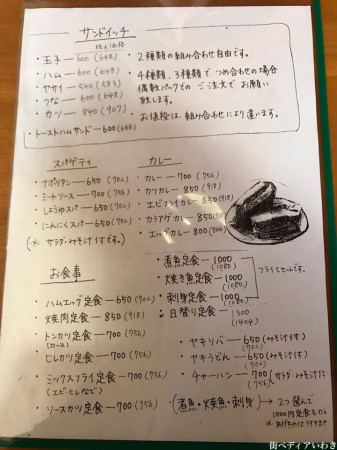 サンドイッチ
税込価格
・玉子 — 600 (648)
・ハム — 600 (648)
・ヤサイ — 540 (583)
・つな — 600 (648)
・カツ — 840 (907)
・トーストハムサンド — 600 (648)
・2種類の組み合わせ自由です。
・4種類、3種類で、つめ合わせの場合
偶数パックでの ご注文で お願い
致します。
お値段は、組み合わせにより違います。
スパゲティ
・ナポリタン — 650 (702)
・ミートソース — 700 (756)
・しょうゆスパ — 650 (702)
・にんにくスパ — 650 (702)
(※ サラダ・みそ汁付です。)
カレー
・カレー — 700 (756)
・カツカレー 850 (918)
・エビフライカレー 850 (918)
・カラアゲカレー 850
・エッグカレー 800 (864)
お食事
・ハムエッグ定食 — 650 (702)
・焼肉定食 — 850 (918)
・トンカツ定食 — 700 (756)
(ロース)
・ヒレカツ定食 — 700 (756)
・ミックスフライ定食 — 700 (756)
(エビ・ヒレなど)
・ソースカツ定食 — 700 (756)
・煮魚定食 — 1000
(1080)
・焼き魚定食 — 1000
(1080)
・刺身定食 — 1000
(1080)
・日替り定食 — 1300
(1404)
フライとセットです。
・ヤキソバ — 650 (みそ汁付)
(702)
・ヤキうどん — 650 (みそ汁付)
(702)
・チャーハン — 700 (サラダ・みそ汁付)
(756)
(煮魚・焼魚・刺身) → 2つ選んで
1000円定食もOK
街ペディアいわき